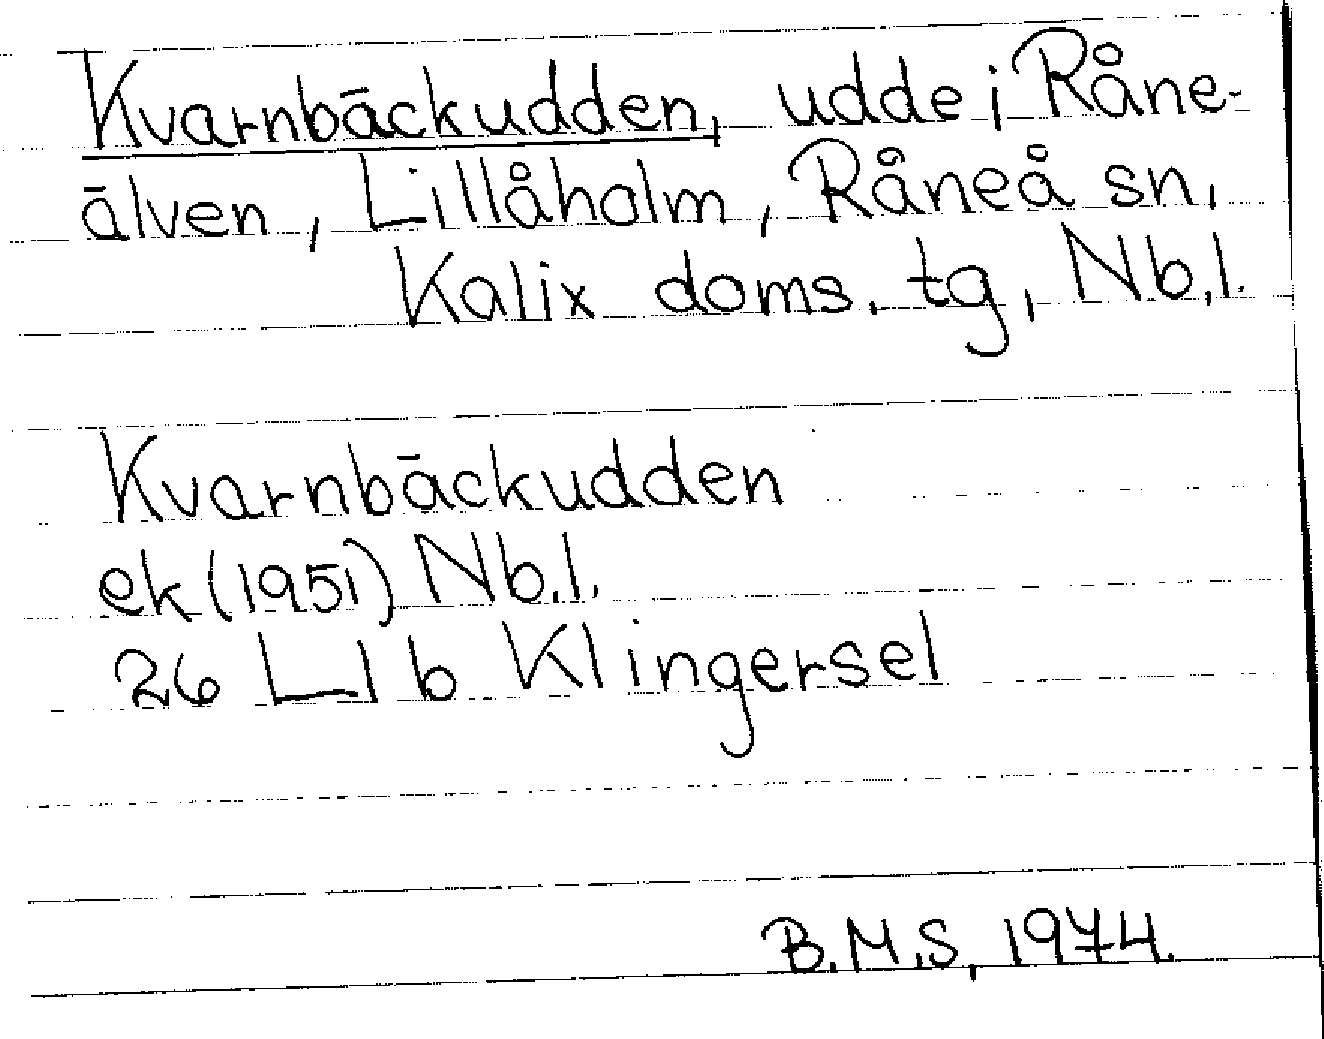 Kvarnbäckudden, udde i Råne-
älven, Lillåholm, Råneå sn,
Kalix doms. tg, Nb.l.
Kvarnbäckudden
ek (1951) Nb.l.
26 L l b Klingersel
B.M.S, 1974.